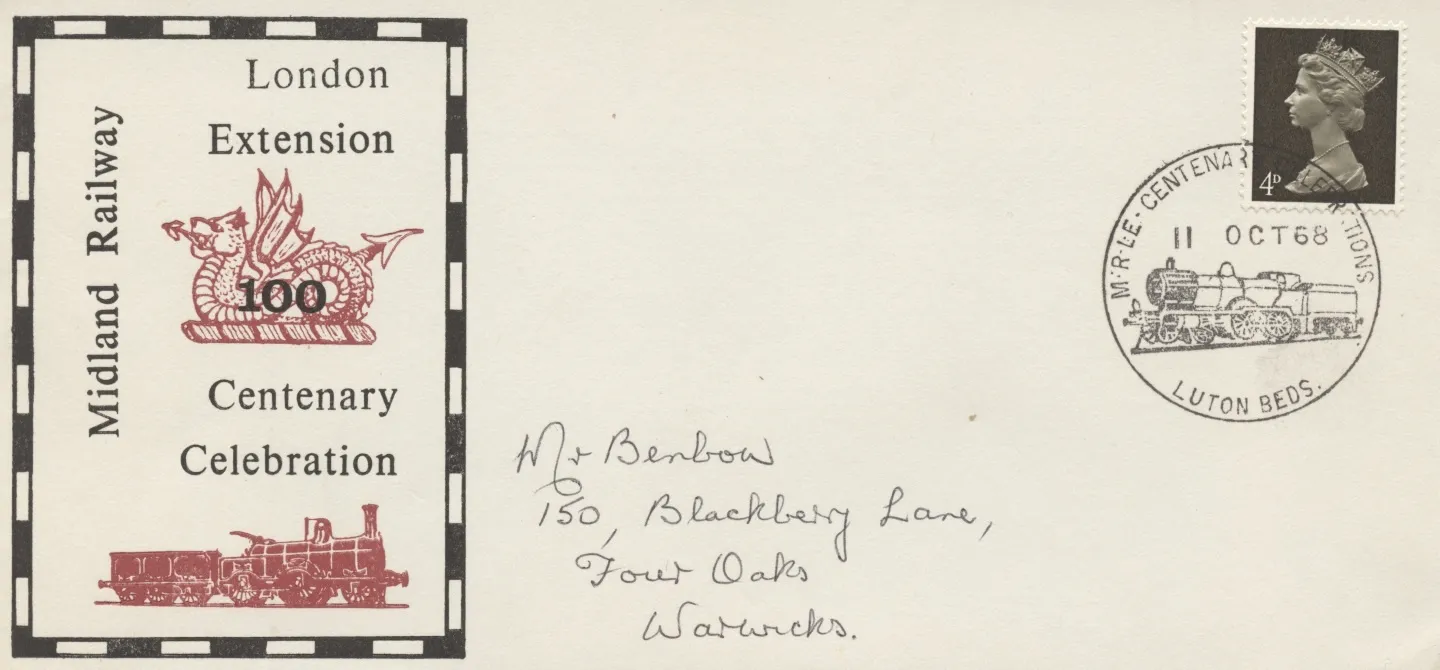 Midland Railway
London
Extension
100
Centenary
Celebration
4D
M·R·LE· CENTENARY CELEBRATIONS
11 OCT68
LUTON BEDS.
Mr Benbow
150, Blackberry Lane,
Four Oaks
Warwicks.